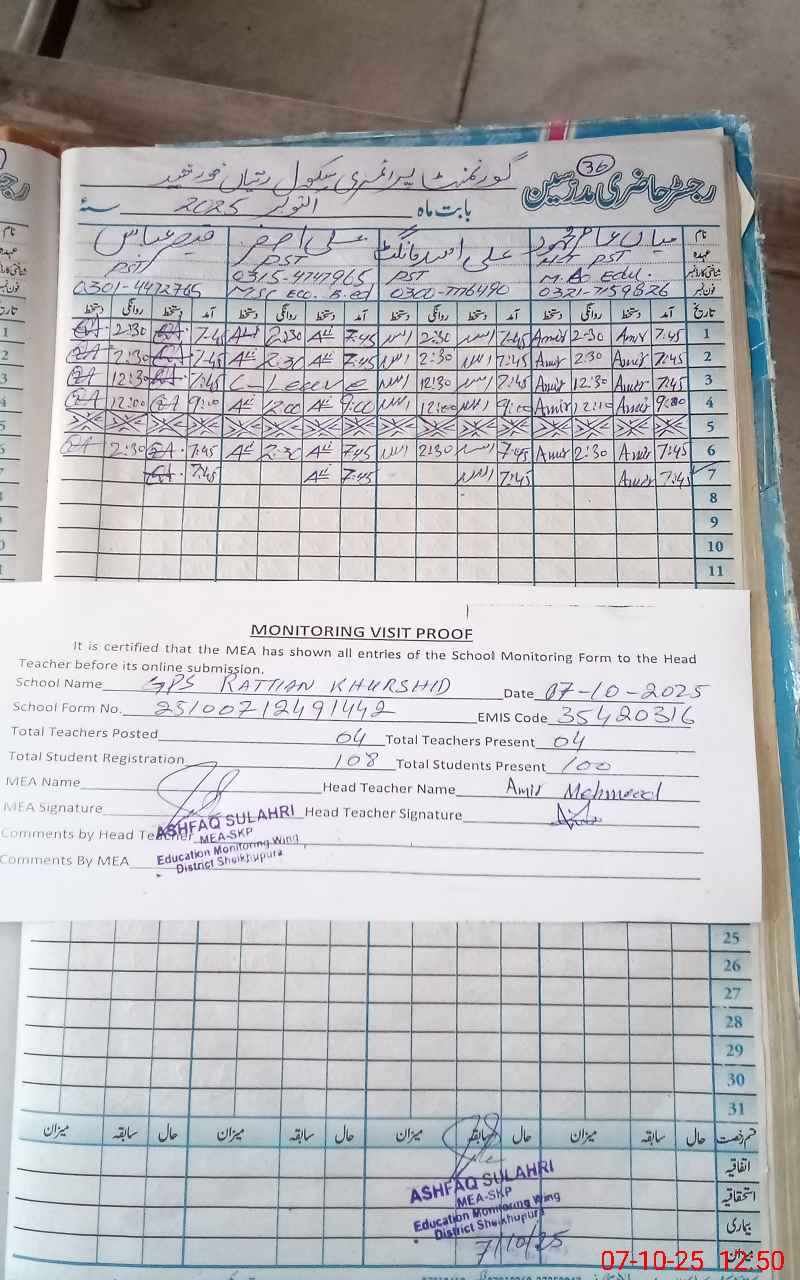 36
رجسٹر حاضری مدرسین
گورنمنٹ پرائمری سکول رتیاں خورشید
بابت ماہ اکتوبر 2025 سنہ
نام
قیصر عباس
علی اصغر
علی اسد
عہدہ
PST PST PST PST
شناختی کارڈ نمبر
M.Sc. Eco. B.ed
فون نمبر
0301-4472765 0315-4747965 0300-7776490 0321-7159826
تاریخ آمد دستخط روانگی دستخط آمد دستخط روانگی دستخط آمد دستخط روانگی دستخط آمد دستخط روانگی دستخط
1 7:45 Amir 2:30 Amir 7:45 2:30 7:45 2:30 7:45 2:30
2 7:45 Amir 2:30 Amir 7:45 2:30 7:45 2:30 7:45 2:30
3 7:45 Amir 12:30 Amir 7:45 12:30 C-Leave 7:45 12:30
4 9:00 Amir 12:10 Amir 9:00 12:00 9:00 12:00 9:00 12:00
5
6 7:45 Amir 2:30 Amir 7:45 2:30 7:45 2:30 7:45 2:30
7 7:45 Amir 7:45 7:45 7:45
8
9
10
11
MONITORING VISIT PROOF
It is certified that the MEA has shown all entries of the School Monitoring Form to the Head
Teacher before its online submission.
School Name GPS RATTIAN KHURSHID Date 07-10-2025
School Form No. 25100712491442 EMIS Code 35420316
Total Teachers Posted 04 Total Teachers Present 04
Total Student Registration 108 Total Students Present 100
MEA Name Head Teacher Name Amir Mehmood
MEA Signature Head Teacher Signature
Comments by Head Teacher
Comments By MEA
ASHFAQ SULAHRI
MEA-SKP
Education Monitoring Wing
District Sheikhupura
25
26
27
28
29
30
31
قسم رخصت حال سابقہ میزان حال سابقہ میزان حال سابقہ میزان حال سابقہ میزان
اتفاقیہ
استحقاقیہ
بیماری
میزان
ASHFAQ SULAHRI
MEA-SKP
Education Monitoring Wing
District Sheikhupura
7/10/25
07-10-25 12:50